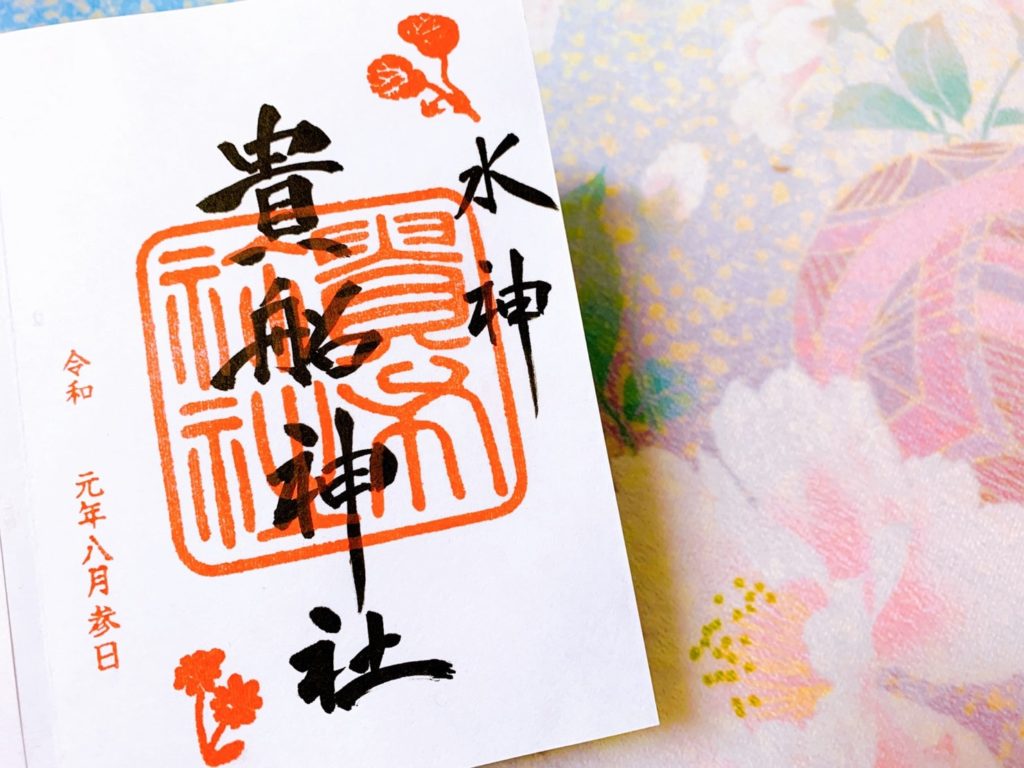 水神
貴船神社
貴船神社
令和 元年八月参日